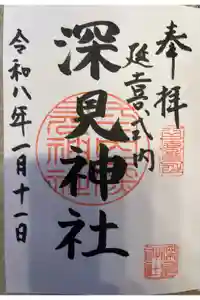 奉拝
延喜式内
深見神社
令和八年一月十一日